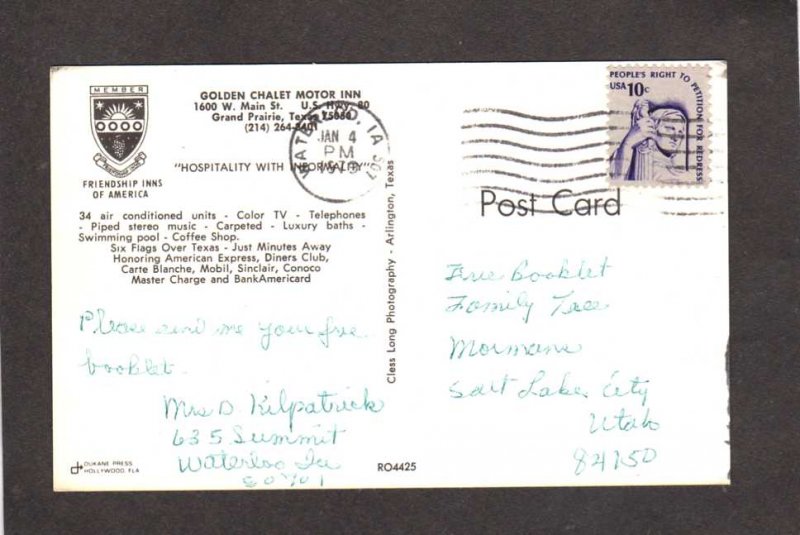 MEMBER
FRIENDSHIP INNS
OF AMERICA
GOLDEN CHALET MOTOR INN
1600 W. Main St. U.S. Hwy. 80
Grand Prairie, Texas 75050
(214) 264-2401
"HOSPITALITY WITH INFORMALITY"
34 air conditioned units - Color TV - Telephones
- Piped stereo music - Carpeted - Luxury baths -
Swimming pool - Coffee Shop.
Six Flags Over Texas - Just Minutes Away
Honoring American Express, Diners Club,
Carte Blanche, Mobil, Sinclair, Conoco
Master Charge and BankAmericard
Please send me your free
booklet.
Mrs D. Kilpatrick
635 Summit
Waterloo Ia
50701
DUKANE PRESS
HOLLYWOOD, FLA
RO4425
Cless Long Photography - Arlington, Texas
WATERLOO, IA 507
JAN 4
PM
PEOPLE'S RIGHT TO PETITION FOR REDRESS
USA 10c
Post Card
Free Booklet
Family Tree
Mormans
Salt Lake City
Utah
84150